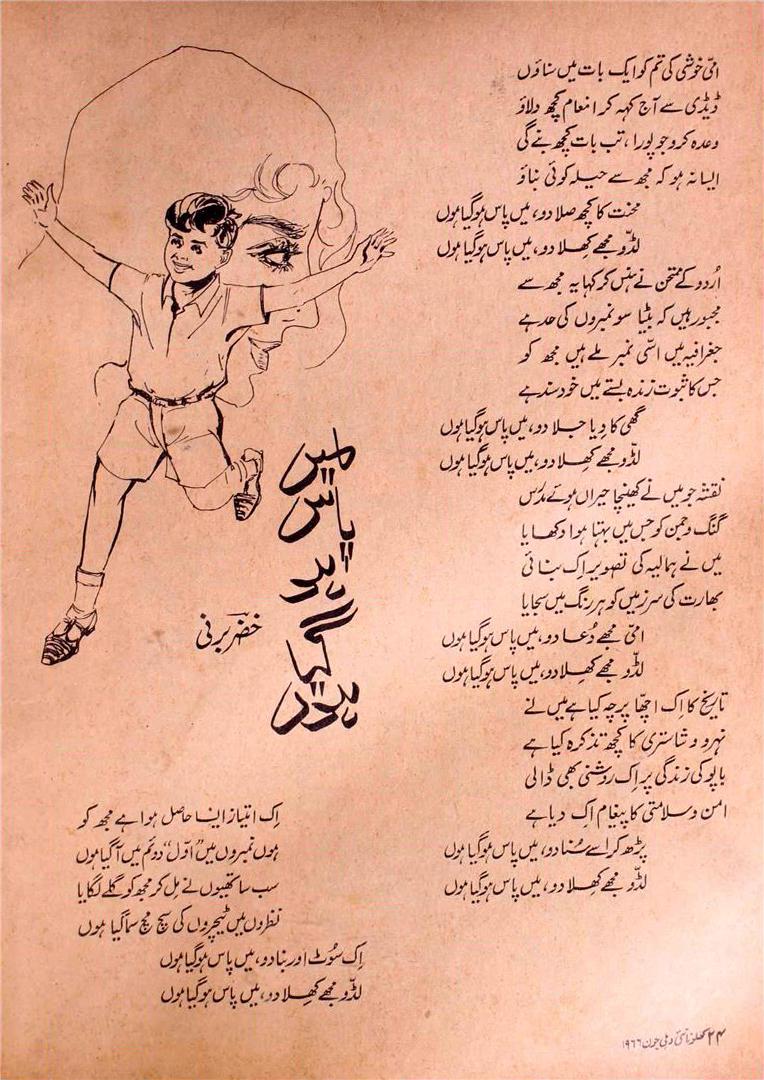 امّی خوشی کی تم کو ایک بات میں سناؤں
ڈیڈی سے آج کہہ کر انعام کچھ دلاؤ
وعدہ کرو جو پورا، تب بات کچھ بنے گی
ایسا نہ ہو کہ مجھ سے حیلہ کوئی بناؤ
محنت کا کچھ صلا دو، میں پاس ہوگیا ہوں
لڈّو مجھے کھلا دو، میں پاس ہوگیا ہوں
اُردو کے ممتحن نے ہنس کر کہا یہ مجھ سے
مجبور ہیں کہ بیٹیا سو نمبروں کی حد ہے
جغرافیہ میں اسّی نمبر ملے ہیں مجھ کو
جس کا ثبوت زندہ بستے میں خود سند ہے
گھی کا دِیا جلا دو، میں پاس ہوگیا ہوں
لڈّو مجھے کھلا دو، میں پاس ہوگیا ہوں
نقشہ جو میں نے کھینچا حیراں ہوئے مدرّس
گنگ و جمن کو جس میں بہتا ہوا دکھایا
میں نے ہمالیہ کی تصویر اِک بنائی
بھارت کی سرزمیں کو ہر رنگ میں سجایا
امّی مجھے دُعا دو، میں پاس ہوگیا ہوں
لڈّو مجھے کھلا دو، میں پاس ہوگیا ہوں
تاریخ کا اِک اچھا پرچہ کیا ہے میں نے
نہرو و شاستری کا کچھ تذکرہ کیا ہے
باپو کی زندگی پر اِک روشنی بھی ڈالی
امن و سلامتی کا پیغام اِک دیا ہے
پڑھ کر اسے سُنا دو، میں پاس ہوگیا ہوں
لڈّو مجھے کھلا دو، میں پاس ہوگیا ہوں
میں
پاس
ہو گیا
ہوں
خضر برنی
اِک امتیاز ایسا حاصل ہوا ہے مجھ کو
ہوں نمبروں میں "اوّل" دوئم میں آگیا ہوں
سب ساتھیوں نے مِل کر مجھ کو گلے لگایا
نظروں میں ٹیچروں کی سچ مچ سما گیا ہوں
اِک سُوٹ اور بنا دو، میں پاس ہوگیا ہوں
لڈّو مجھے کھلا دو، میں پاس ہوگیا ہوں
۲۴ کھلونا نئی دہلی جون ۱۹۶۶